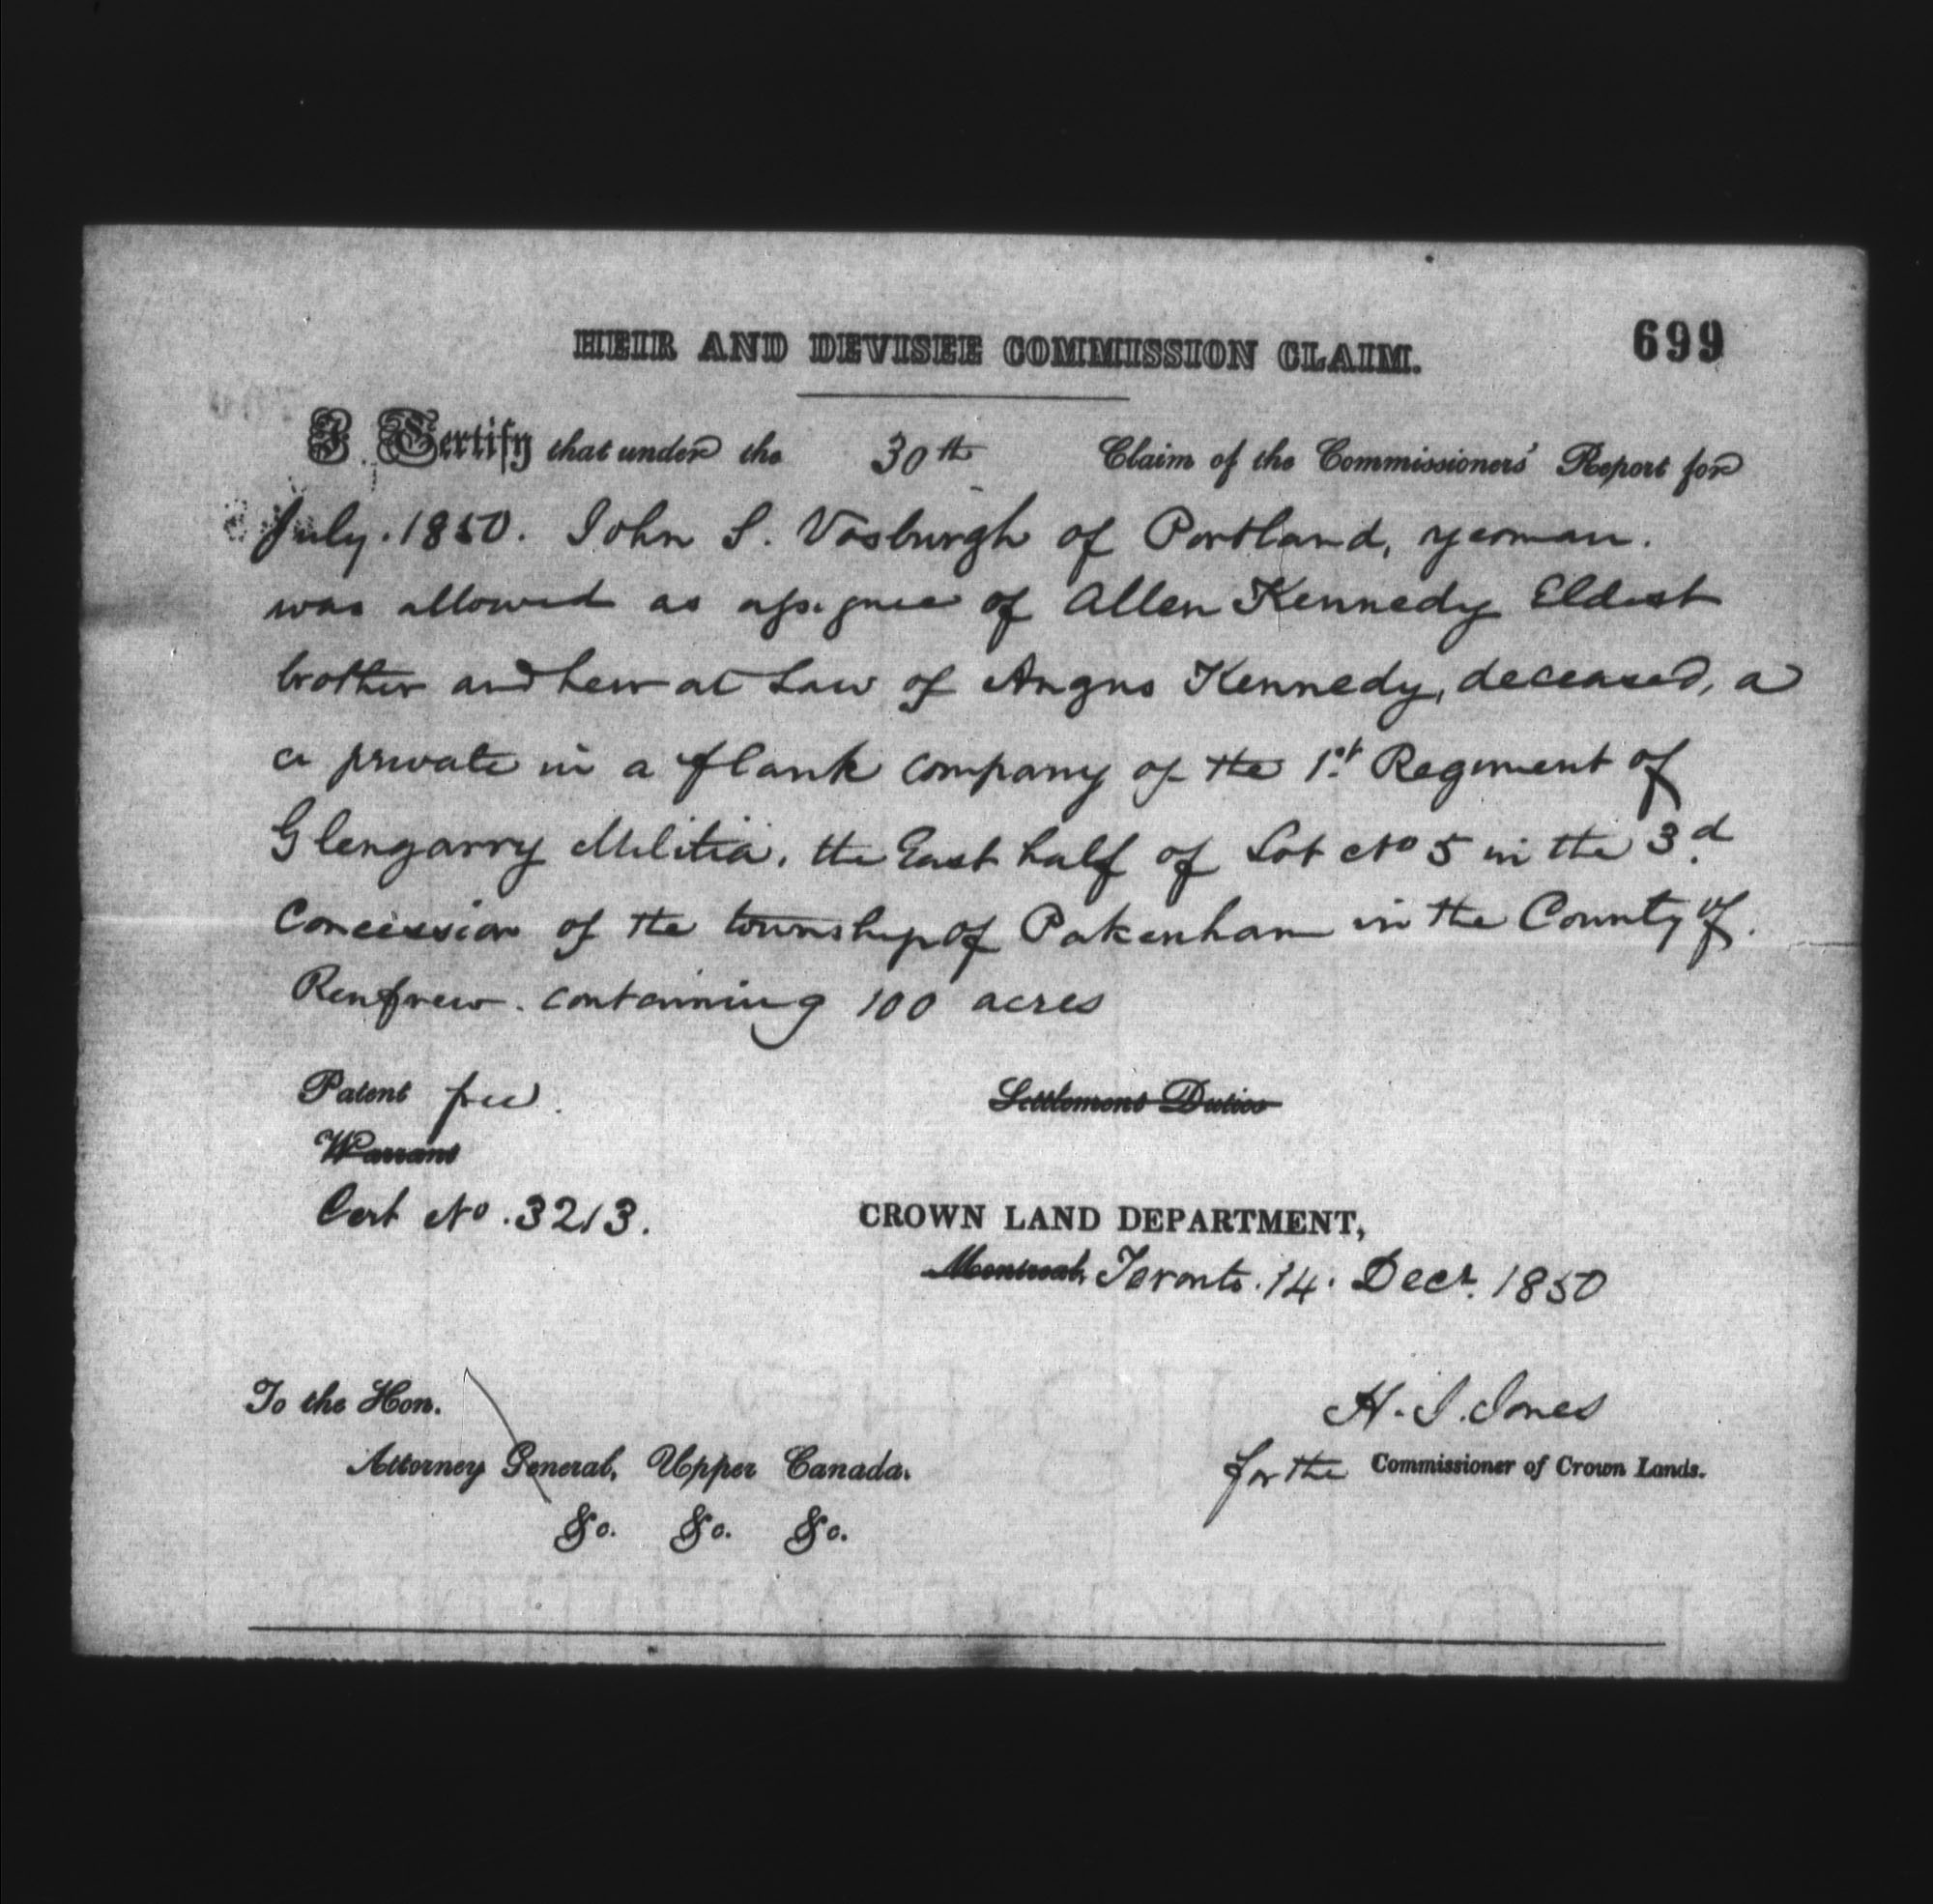 HEIR AND DEVISEE COMMISSION CLAIM. 699
I Certify that under the 30th Claim of the Commissioners' Report for
July. 1850. John S. Vosburgh of Portland, yeoman.
was allowed as assignee of Allen Kennedy Eldest
brother and heir at Law of Angus Kennedy, deceased, a
a private in a flank company of the 1st Regiment of
Glengarry Militia, the East half of Lot No 5 in the 3d
Concession of the township of Pakenham in the County of.
Renfrew. containing 100 acres
Patent free. Settlement Duties
Warrant
Cert No. 3213.
CROWN LAND DEPARTMENT,
Montreal, Toronto. 14. Decr. 1850
To the Hon. H. J. Jones
Attorney General, Upper Canada. for the Commissioner of Crown Lands.
&c. &c. &c.